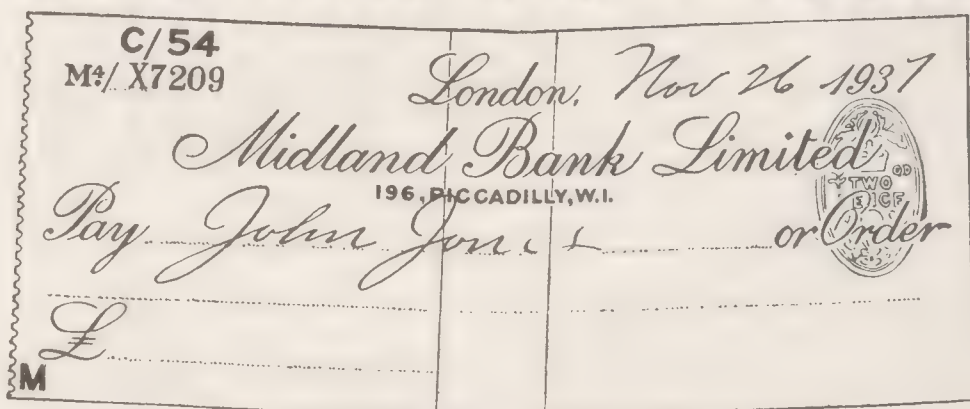 C/54
M4/ X7209
London, Nov 26 1937
Midland Bank Limited
196, PICCADILLY, W.I.
Pay John Jones or Order
TWO
£
M